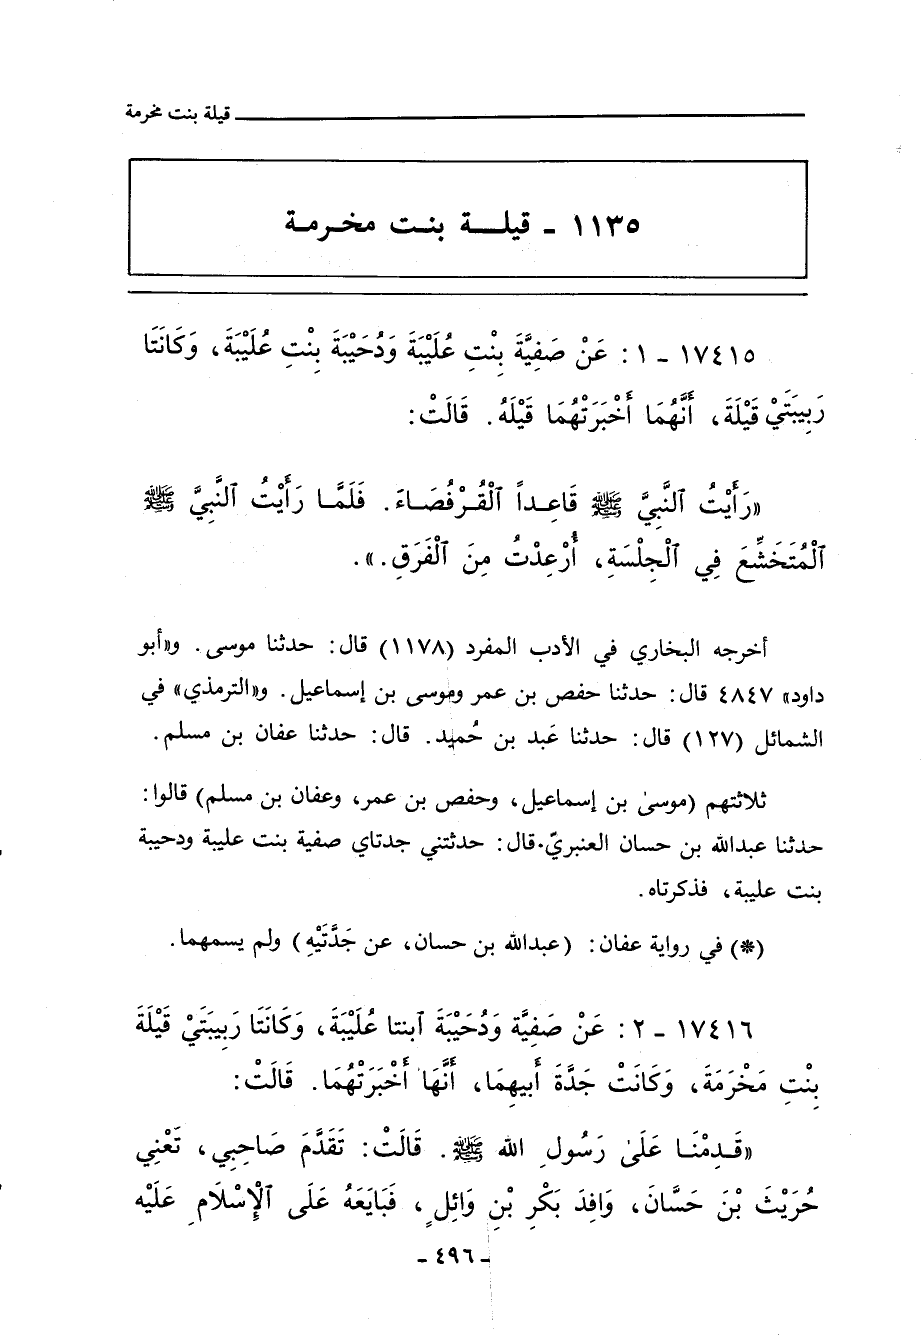 قيلة بنت مخرمة
١١٣٥ - قيلـــة بنـت مخـرمـة
١٧٤١٥ - ١ : عَنْ صَفِيَّةَ بِنْتِ عُلَيْبَةَ وَدُحَيْبَةَ بِنْتِ عُلَيْبَةَ، وَكَانَتَا
رَبِيبَتَيْ قَيْلَةَ، أَنَّهُمَا أَخْبَرَتْهُمَا قَيْلَةُ. قَالَتْ:
«رَأَيْتُ النَّبِيَّ ﷺ قَاعِـداً ٱلْقُـرْفُصَـاءَ. فَلَمَّـا رَأَيْتُ ٱلنَّبِيَّ ﷺ
ٱلْمُتَخَشِّعَ فِي ٱلْجِلْسَةِ، أُرْعِدْتُ مِنَ ٱلْفَرَقِ.».
أخرجه البخاري في الأدب المفرد (١١٧٨) قال: حدثنا موسى. و«أبو
داود» ٤٨٤٧ قال: حدثنا حفص بن عمر وموسى بن إسماعيل. و«الترمذي» في
الشمائل (١٢٧) قال: حدثنا عَبد بن حُميد. قال: حدثنا عفان بن مسلم.
ثلاثتهم (موسىٰ بن إسماعيل، وحفص بن عمر، وعفان بن مسلم) قالوا:
حدثنا عبدالله بن حسان العنبريّ. قال: حدثتني جدتاي صفية بنت عليبة ودحيبة
بنت عليبة، فذكرتاه.
(*) في رواية عفان: (عبدالله بن حسان، عن جَدَّتَيْهِ) ولم يسمهما.
١٧٤١٦ - ٢ : عَنْ صَفِيَّة وَدُحَيْبَةَ ٱبنتا عُلَيْبَةَ، وَكَانَتَا رَبِيبَتَيْ قَيْلَةَ
بِنْتِ مَخْرَمَةَ، وَكَانَتْ جَدَّةَ أَبيهِمَا، أَنَّهَا أَخْبَرَتْهُمَا. قَالَتْ:
«قَـدِمْنَـا عَلَىٰ رَسُولِ الله ﷺ. قَالَتْ: تَقَدَّمَ صَاحِبِي، تَعْنِي
حُرَيْثَ بْنَ حَسَّانَ، وَافِدَ بَكْرِ بْنِ وَائِلٍ، فَبَايَعَهُ عَلَى ٱلْإِسْلَامِ عَلَيْهِ
- ٤٩٦ -